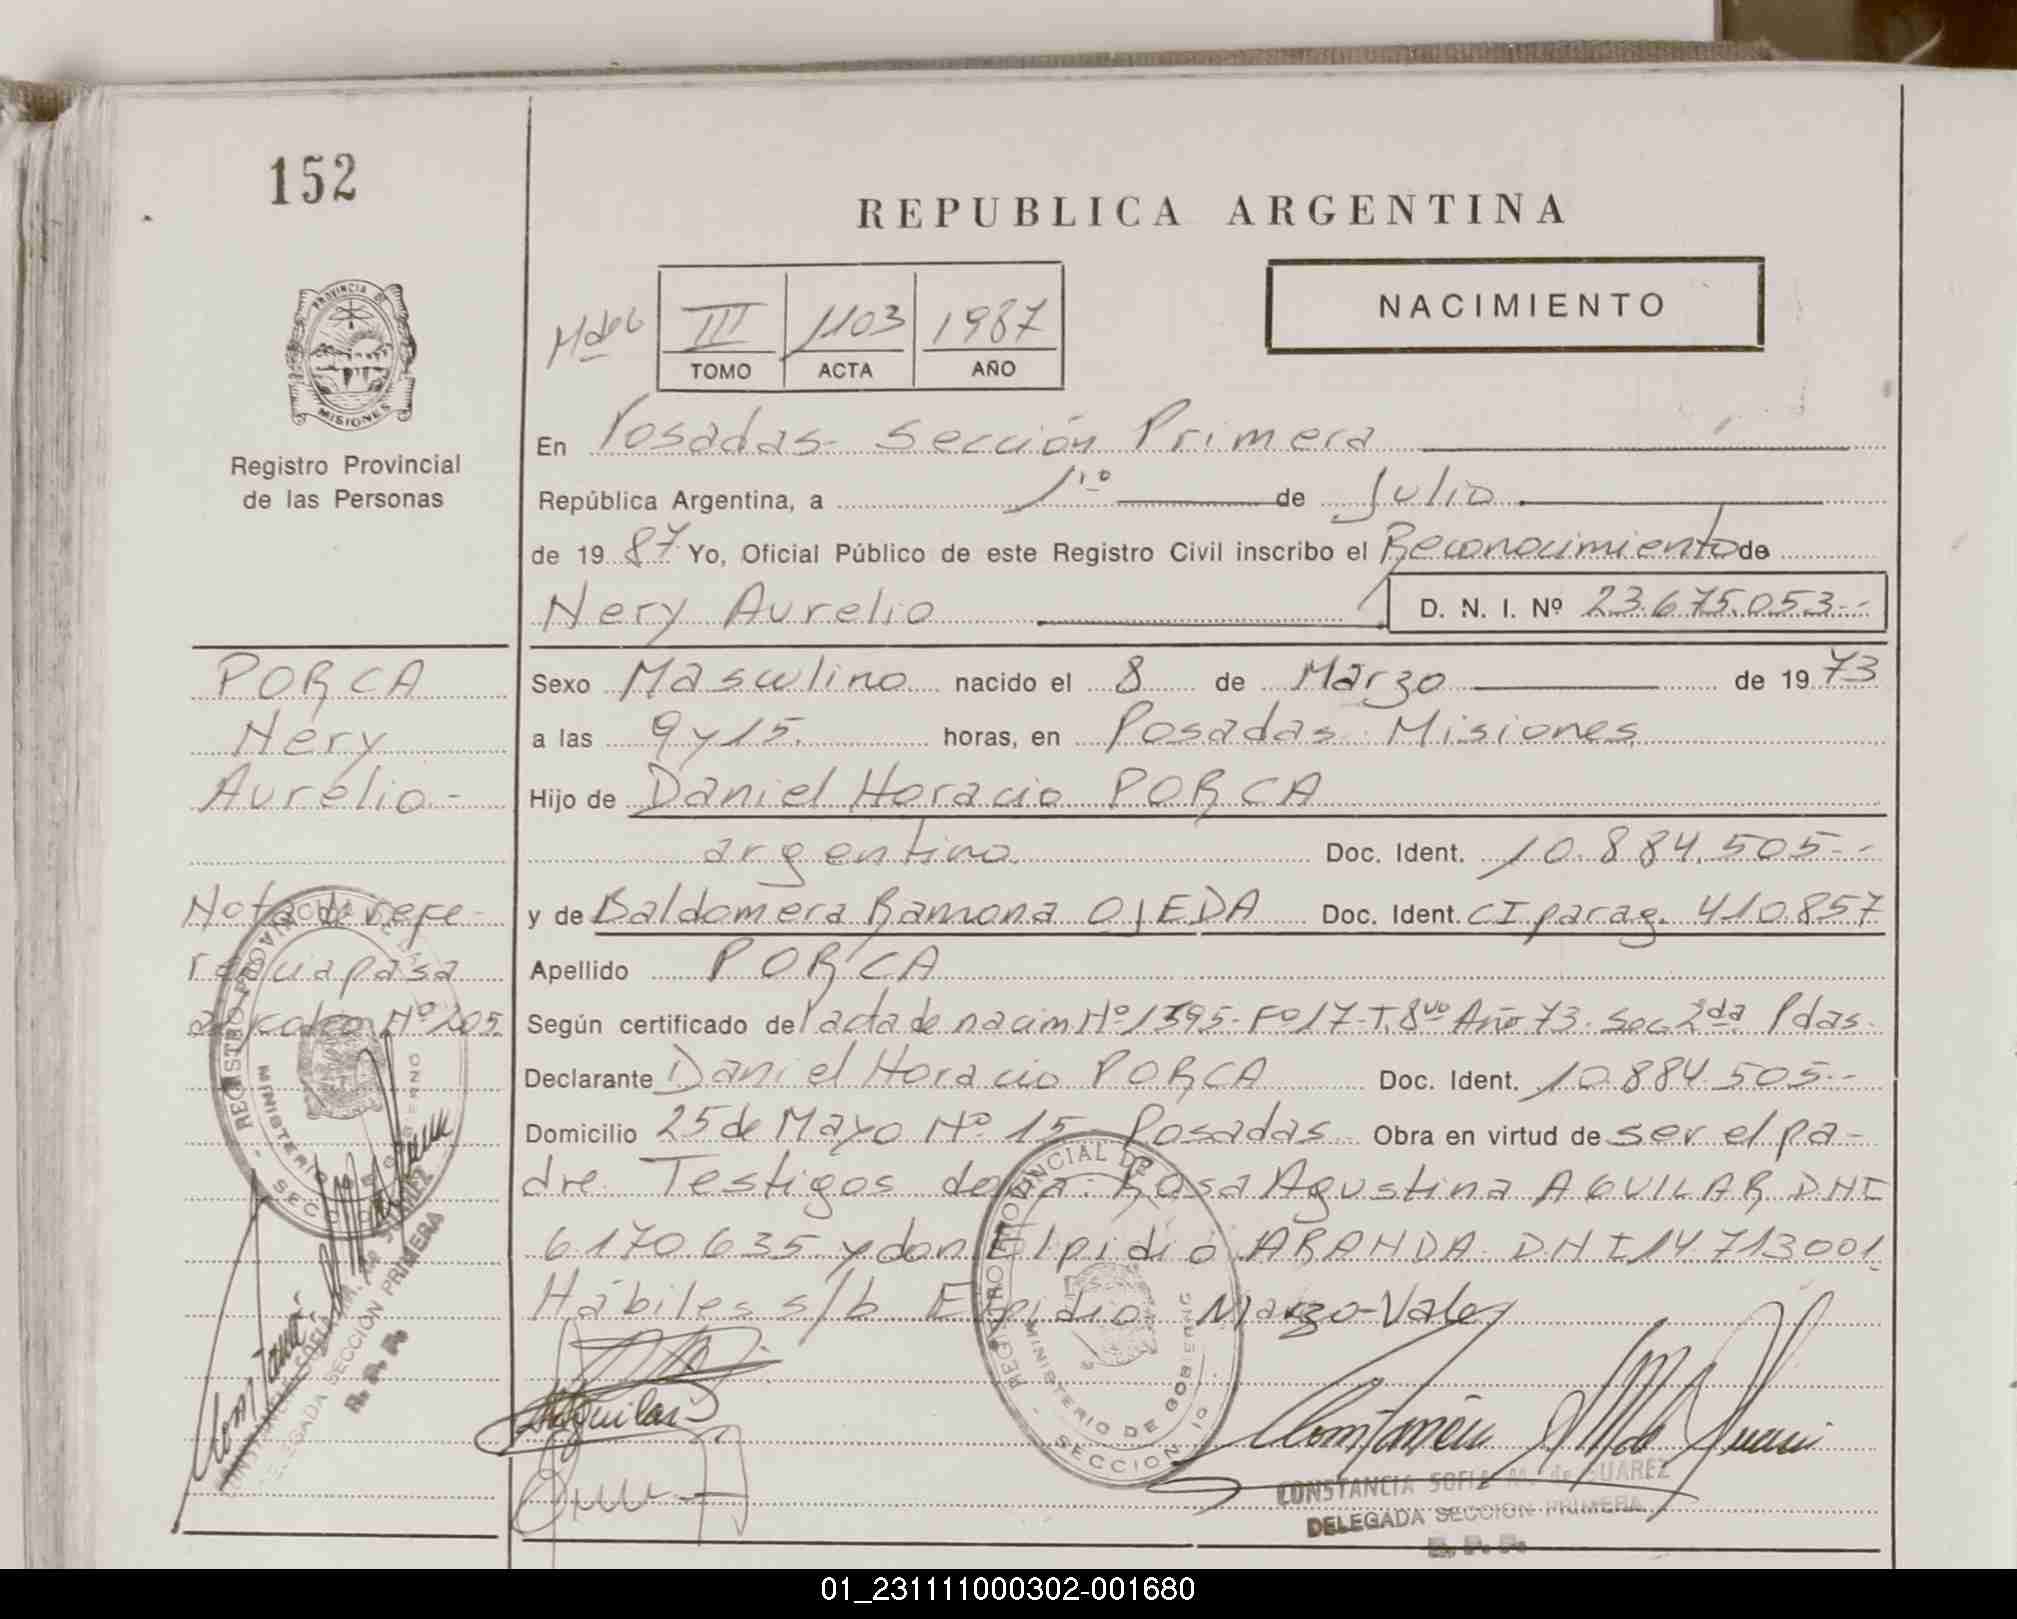 152
REPUBLICA ARGENTINA
NACIMIENTO
III 1103 1987
TOMO ACTA AÑO
PROVINCIA DE
MISIONES
Registro Provincial
de las Personas
En Posadas- Sección Primera
República Argentina, a 1º de Julio
de 1987 Yo, Oficial Público de este Registro Civil inscribo el Reconocimiento de
Nery Aurelio D. N. I. Nº 23.675.053--
PORCA
Nery
Aurelio-
Sexo Masculino nacido el 8 de Marzo de 1973
a las 9 y 15. horas, en Posadas Misiones
Hijo de Daniel Horacio PORCA
argentino Doc. Ident. 10.884.505--
y de Baldomera Ramona OJEDA Doc. Ident. CI parag. 410.857
Apellido PORCA
Nota de refe-
rencia pasa
al Nº 205
Según certificado del acta de nacim Nº 1395- Fº 17-T. 8vo Año 73. Sec 2da Pdas.
Declarante Daniel Horacio PORCA Doc. Ident. 10.884.505--
Domicilio 25 de Mayo Nº 15 Posadas Obra en virtud de ser el pa-
dre Testigos doña: Rosa Agustina AGUILAR DNI
6170.635 y don Elpidio ARANDA DNI 14713001
Hábiles s/b Elpidio Marzo-Vale
REGISTRO PROVINCIAL DE
MINISTERIO DE GOBIERNO
SECCION 1º
REGISTRO PROVINCIAL
MINISTERIO DE GOBIERNO
DELEGADA SECCION PRIMERA
R. P. P.
Aguilar
CONSTANCIA SOFIA M. de SUAREZ
DELEGADA SECCION PRIMERA
R. P. P.
01_231111000302-001680